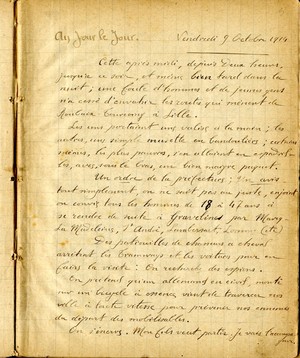 Au Jour le Jour. Vendredi 9 Octobre 1914
Cette après midi, depuis deux heures,
jusque ce soir, et même bien tard dans la
nuit ; une foule d'hommes et de jeunes gens
n'a cessé d'envahir les routes qui mènent de
Roubaix Tourcoing à Lille.
Les uns portaient une valise à la main ; les
autres, une simple musette en bandoulière ; certains
même, les plus pauvres, s'en allaient en
les, avec, sous le bras, un bien maigre paquet.
Un ordre de la préfecture : Un avis
tout simplement, on ne sait pas au juste, enjoint
à tous les hommes de 18 à 47 ans à
se rendre de suite à Gravelines par Marcq
La Madeleine, St André, Lomme (etc)
Des patrouilles de chasseurs à cheval
arrêtent les tramways et les voitures pour en
faire la visite : On recherche des espions.
On prétend qu'un allemand en civil, monté
sur un bicycle à essence, vient de traverser en
ville à toute vitesse pour prévenir nos ennemis
du départ des mobilisables.
On s'énerve. Mon fils veut partir. Je vais